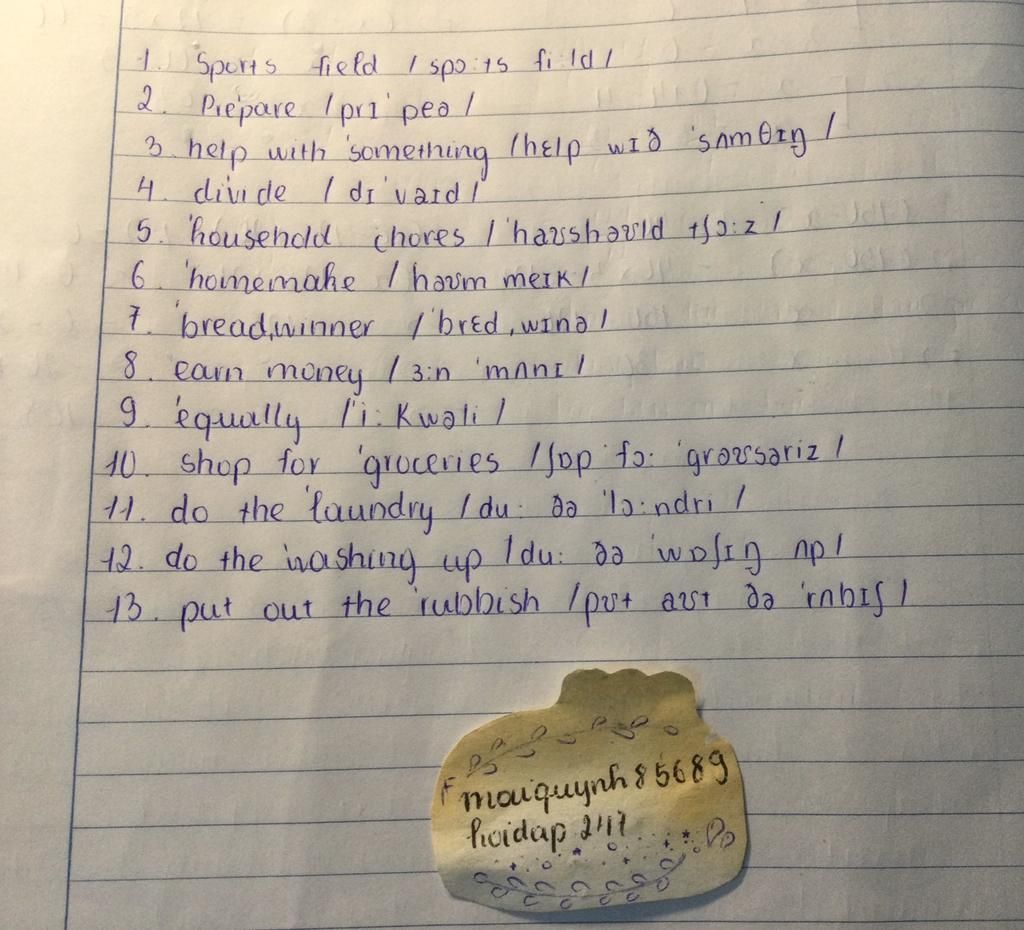 1. Sports field / spɔ:ts fi:ld /
2. Pre'pare / prɪ'peə /
3. help with 'something / help wɪð 'sʌmθɪŋ /
4. divide / dɪ'vaɪd /
5. 'household chores / 'haʊshəʊld tʃɔ:z /
6. 'homemake / həʊm meɪk /
7. 'bread,winner / 'brɛd,wɪnə /
8. earn money / ɜ:n 'mʌnɪ /
9. 'equally / 'i:kwəli /
10. shop for 'groceries / ʃɒp fɔ: 'grəʊsəriz /
11. do the 'laundry / du: ðə 'lɔ:ndri /
12. do the 'washing up / du: ðə 'wɒʃɪŋ ʌp /
13. put out the 'rubbish / pʊt aʊt ðə 'rʌbɪʃ /
maiquynh85689
hoidap 247